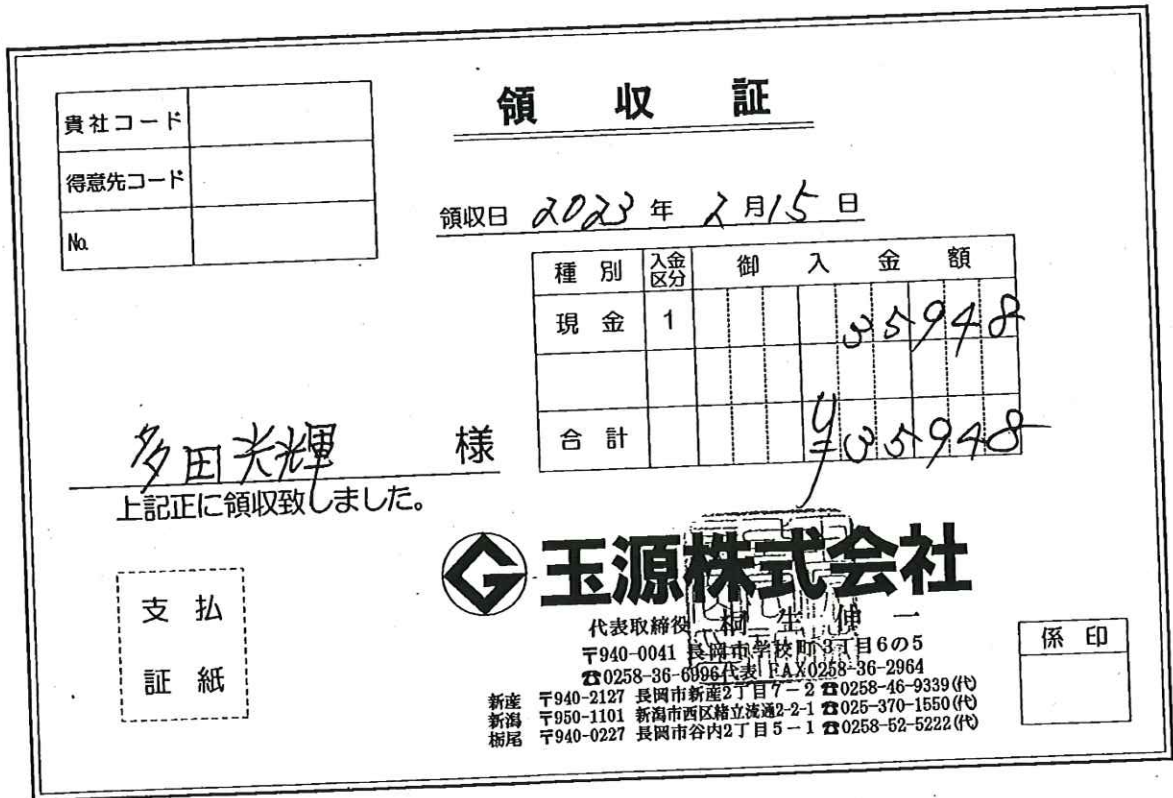 領収証
貴社コード
得意先コード
No.
領収日 2023年 2月15日
種別 入金区分 御入金額
現金 1 35948
合計 ¥35948
多田光輝 様
上記正に領収致しました。
支払
証紙
G 玉源株式会社
代表取締役 桐生伸一
〒940-0041 長岡市学校町3丁目6の5
☎0258-36-6996代表 FAX0258-36-2964
新産 〒940-2127 長岡市新産2丁目7-2 ☎0258-46-9339(代)
新潟 〒950-1101 新潟市西区緒立流通2-2-1 ☎025-370-1550(代)
栃尾 〒940-0227 長岡市谷内2丁目5-1 ☎0258-52-5222(代)
係印